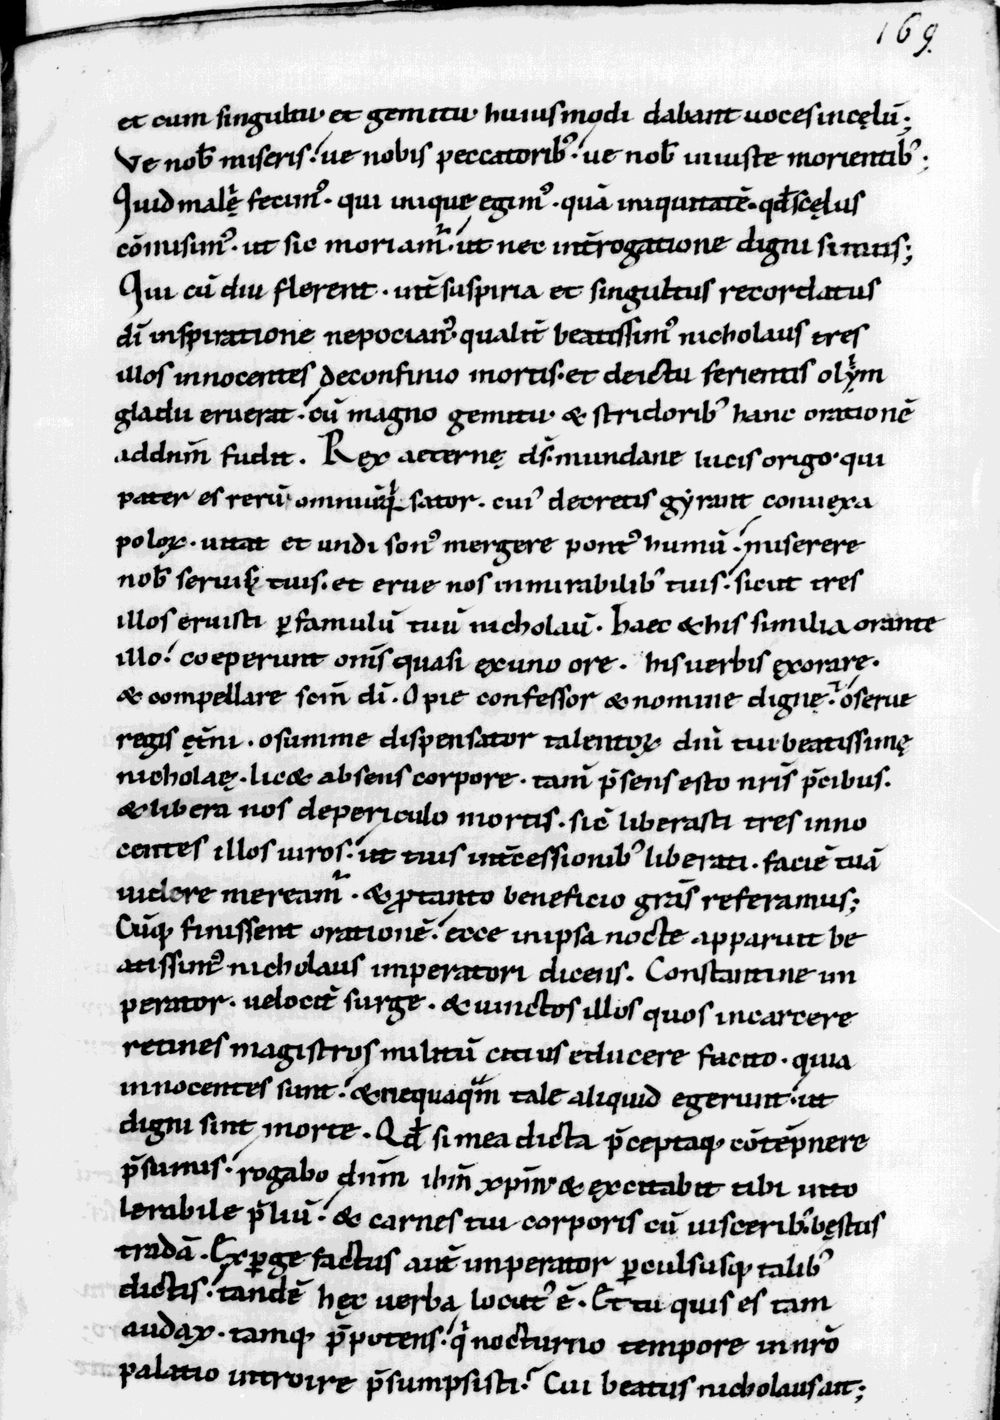 169.
et cum singultu· et gemitu· huiusmodi dabant uoces incęlū;
Ve nob̄ miseris· ue nobis peccatorib᷒· ue nob̄ iniuste morientib᷒;
Quid malę fecim᷒· qui inique egim᷒· quā iniquitatē· qđ scęlus
cōmisim᷒· ut sic moriam᷑· ut nec int̄rogatione digni simus;
Qui cū diu flerent· int̄ suspiria et singultus recordatus
dī inspiratione nepocian᷒· qualit̄ beatissim᷒ nicholaus tres
illos innocentes deconfinio mortis· et deictu ferientis olỹm
gladii eruerat· cū magno gemitu· & stridorib᷒ hanc orationē
addnm̄ fudit. Rex aeternę ds̄· mundane lucis origo· qui
pater es rerū omniūq; sator· cui᷒ decretis gyrant conuexa
poloꝝ· uitat et undi son᷒ mergere pont᷒ humū· miserere
nob̄ seruis tuis· et erue nos inmirabilib᷒ tuis· sicut tres
illos eruisti ꝑfamulū tuū nicholaū· haec &his similia orante
illo· coeperunt oms̄ quasi ęxuno ore· hisuerbis ęxorare·
& compellare scm̄ dī· O pie confessor & nomine dignę· o serue
regis ęt̄ni· osumme dispensator talentoꝝ dnī tui beatissimę
nicholaę· lic& absens corpore· tam̄ p̄sens esto nris̄ p̄cibus·
&libera nos depericulo mortis· sic̄ liberasti tres inno
centes illos uiros· ut tuis int̄cessionib᷒ liberati· faciē tuā
uidere meream᷑· &ꝓtanto beneficio gras̄ referamus;
Cūq; finissent orationē· ecce inipsa nocte apparuit be
atissim᷒ nicholaus imperatori dicens. Constantine im
perator· uelocit̄ surge· & uinctos illos quos incarcere
retines magistros militū citius educere facito· quia
innocentes sunt· &nequaqm̄ tale aliquid egerunt· ut
digni sint morte· Qđ si mea dicta p̄ceptaq; cōtēpnere
p̄sumis· rogabo dnm̄ ihm̄ xpm̄· & ęxcitabit tibi into
lerabile p̄liū· & carnes tui corporis cū uiscerib᷒ bęstiis
tradā· Exꝑgefactus aut̄ imperator ꝑculsusq; talib᷒
dictis· tandē hęc uerba locut᷒ ē· Et tu quis es tam
audax· tamq; p̄potens· qͥ nocturno tempore innrō
palatio introire p̄sumpsisti· Cui beatus nicholaus ait;